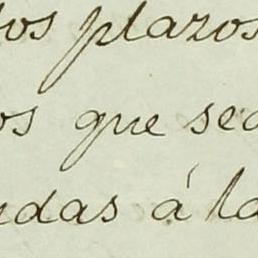 los plazos
os que sea
udas á la